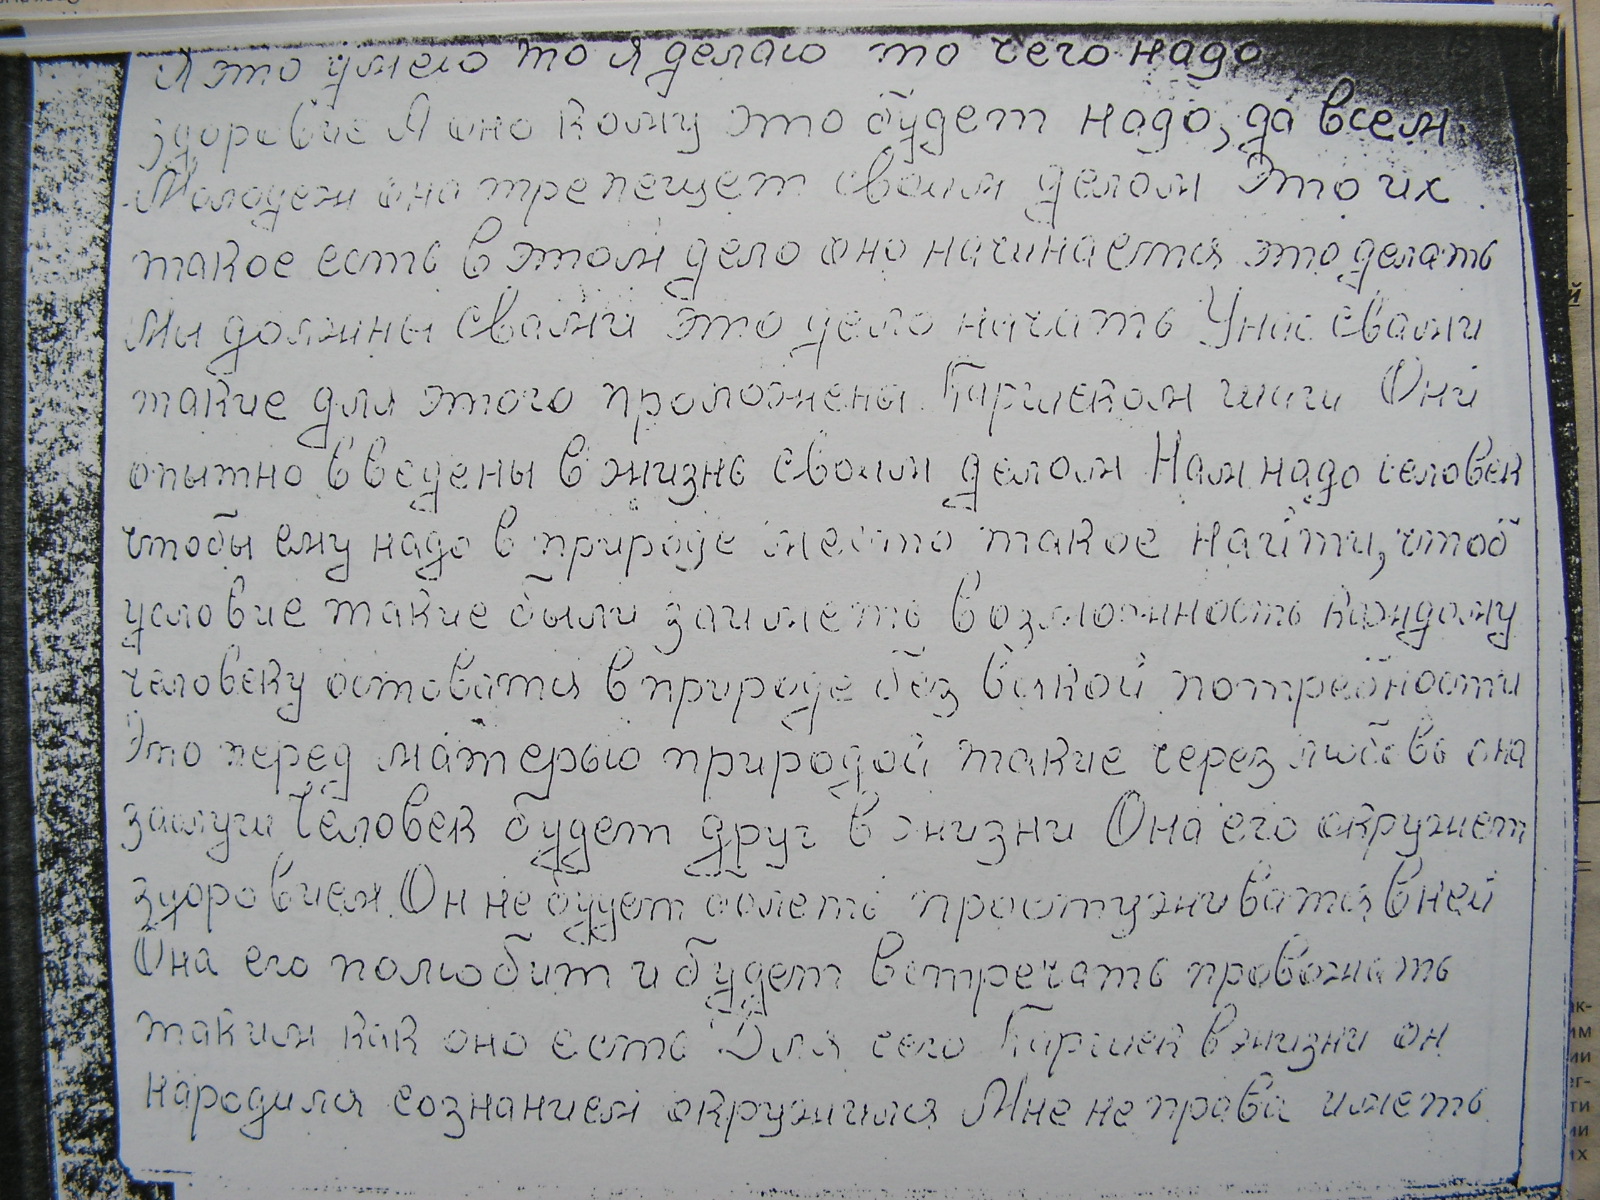 Я это умею то я делаю то чего надо
здоровие А оно кому это будет надо, да всем
Молодеж она трепещет своим делом Это их
такое есть в этом дело оно начинается это делать
Мы должны свами это дело начать Унас свами
такие для этого проложены Паршеком шаги Они
опытно введены в жизнь своим делом Нам надо человек
чтобы ему надо в природе место такое найти, чтоб
условие такие были заиметь возможность каждому
человеку остоватся в природе без всякой потребности
Это перед матерью природой такие через любовь она
заслуги Человек будет друг в жизни Она его окружет
здоровием Он не будет болеть простуживатся в ней
Она его полюбит и будет встречать провожать
таким как оно есть Для сего Паршек в жизни он
народился сознанием окружился Мне не права иметь